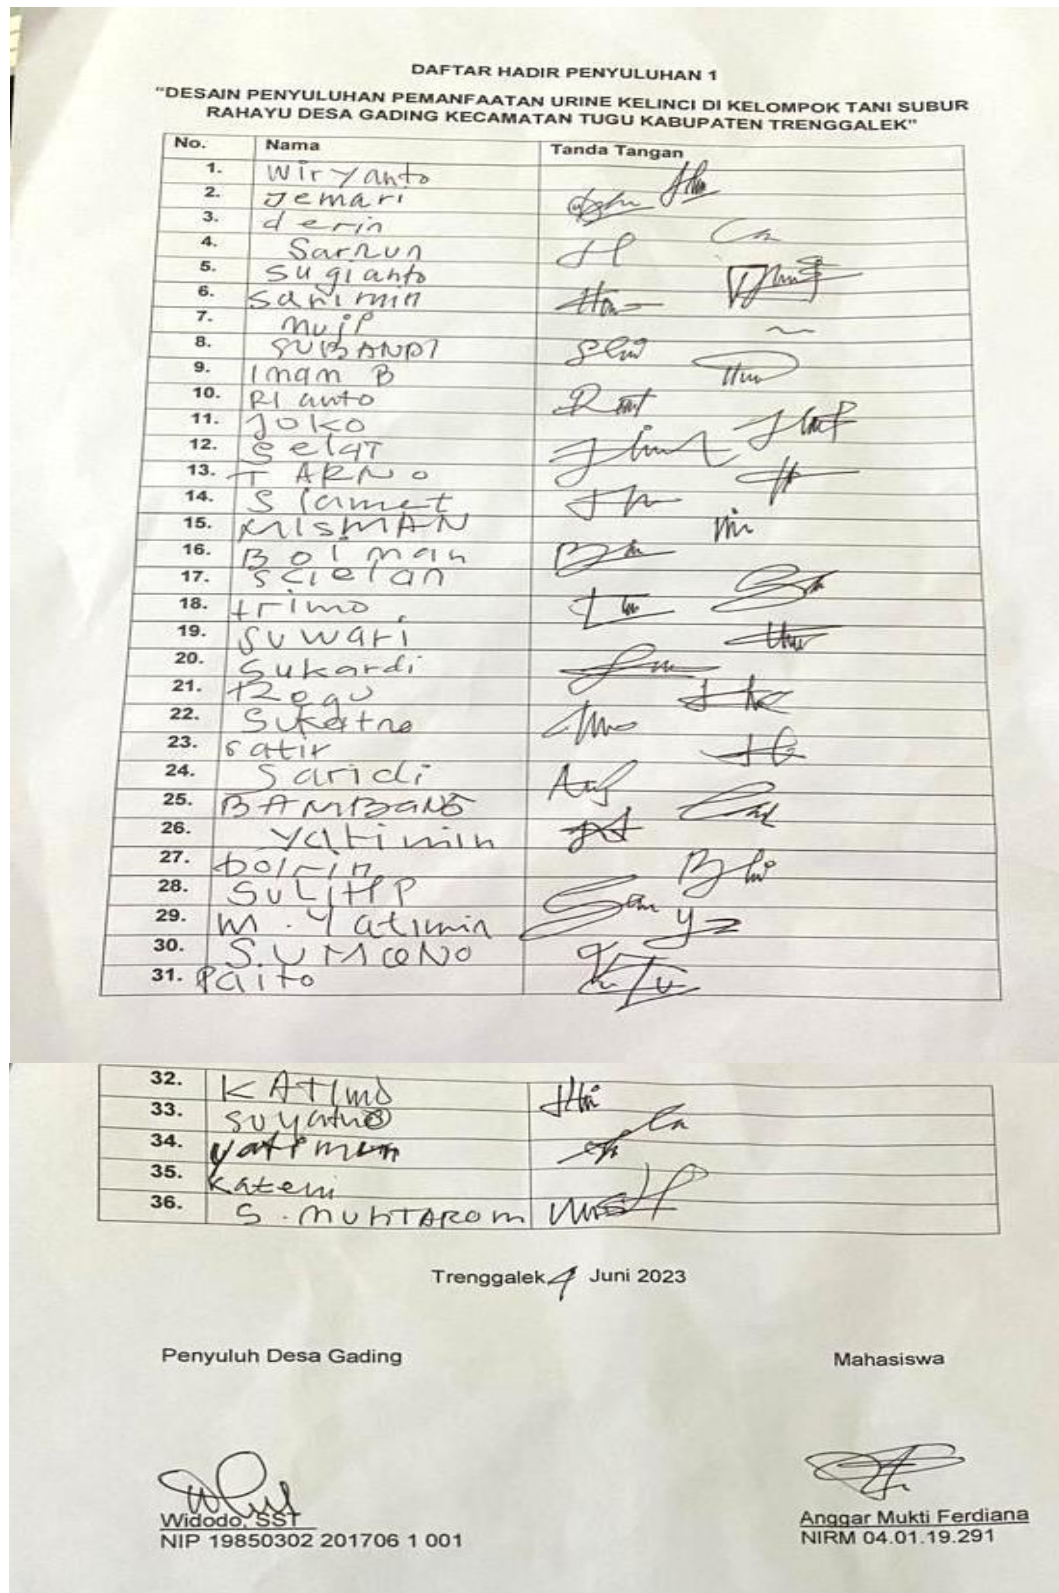 DAFTAR HADIR PENYULUHAN 1
"DESAIN PENYULUHAN PEMANFAATAN URINE KELINCI DI KELOMPOK TANI SUBUR
RAHAYU DESA GADING KECAMATAN TUGU KABUPATEN TRENGGALEK"
No. Nama Tanda Tangan
1. Wiryanto
2. Jemari
3. derin
4. Sarnun
5. Sugianto
6. Sarimin
7. Muji
8. SUBANDI
9. Imam B
10. RI anto
11. Joko
12. Selat
13. TARNO
14. Slamet
15. MISMAN
16. Boiman
17.
18. trimo
19. SUWARI
20. Sukardi
21.
22. Sukatno
23. satir
24. Saridi
25. BAMBANG
26. Yatimin
27.
28. SULIHP
29. M. Yatimin
30.
31. Paito
32. KATIMO
33. SUYatno
34.
35. Kateni
36. S. MUHTAROM
Trenggalek 4 Juni 2023
Penyuluh Desa Gading Mahasiswa
Widodo, SST Anggar Mukti Ferdiana
NIP 19850302 201706 1 001 NIRM 04.01.19.291